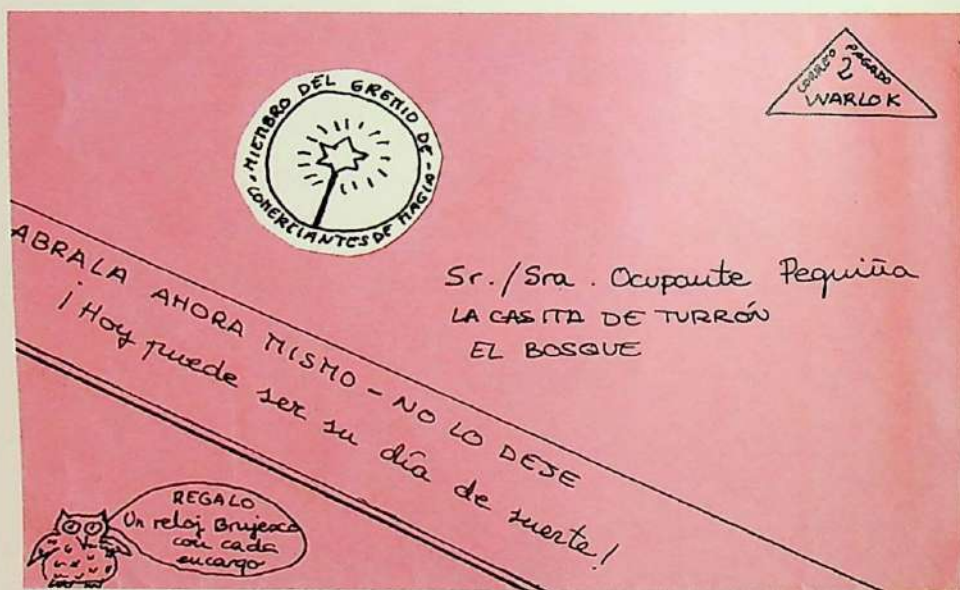 MIEMBRO DEL GREMIO DE
COMERCIANTES DE MAGIA
CORREO PAGADO
2
WARLOK
Sr./Sra. Ocupante Pequiña
LA CASITA DE TURRÓN
EL BOSQUE
ABRALA AHORA MISMO - NO LO DEJE
¡Hoy puede ser su día de suerte!
REGALO
Un reloj Brujesco
con cada
encargo